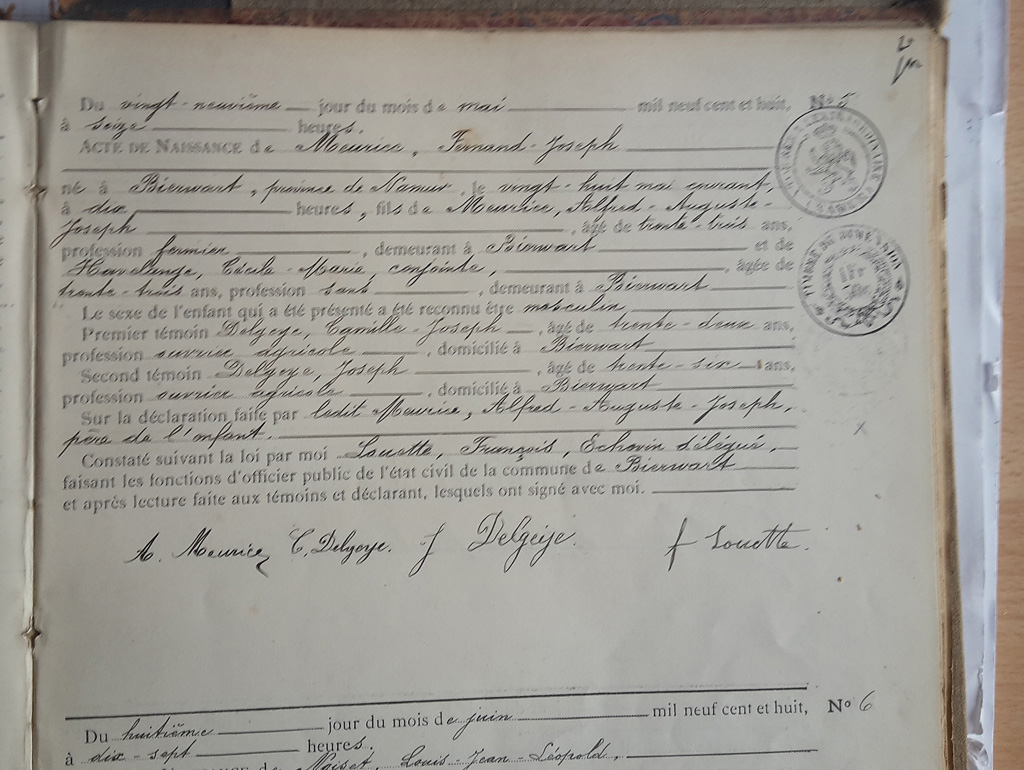 Du vingt-neuvième jour du mois de mai mil neuf cent et huit, No 5
à seize heures.
ACTE DE NAISSANCE de Meurice, Fernand-Joseph
né à Bierwart, province de Namur, le vingt-huit mai courant,
à dix heures, fils de Meurice, Alfred-Auguste-
Joseph, âgé de trente-trois ans,
profession fermier, demeurant à Bierwart et de
Havelange, Cécile-Marie, conjointe, âgée de
trente-trois ans, profession sans, demeurant à Bierwart
Le sexe de l'enfant qui a été présenté a été reconnu être masculin
Premier témoin Delgeye, Camille-Joseph, âgé de trente-deux ans,
profession ouvrier agricole, domicilié à Bierwart
Second témoin Delgeye, Joseph, âgé de trente-six ans,
profession ouvrier agricole, domicilié à Bierwart
Sur la déclaration faite par ledit Meurice, Alfred-Auguste-Joseph,
père de l'enfant.
Constaté suivant la loi par moi Louette, François, Echevin délégué,
faisant les fonctions d'officier public de l'état civil de la commune de Bierwart
et après lecture faite aux témoins et déclarant, lesquels ont signé avec moi.
A. Meurice C. Delgeye. J Delgeije. f Louette.
Du huitième jour du mois de juin mil neuf cent et huit, No 6
à dix-sept heures.
de Noiset, Louis-Jean-Léopold,